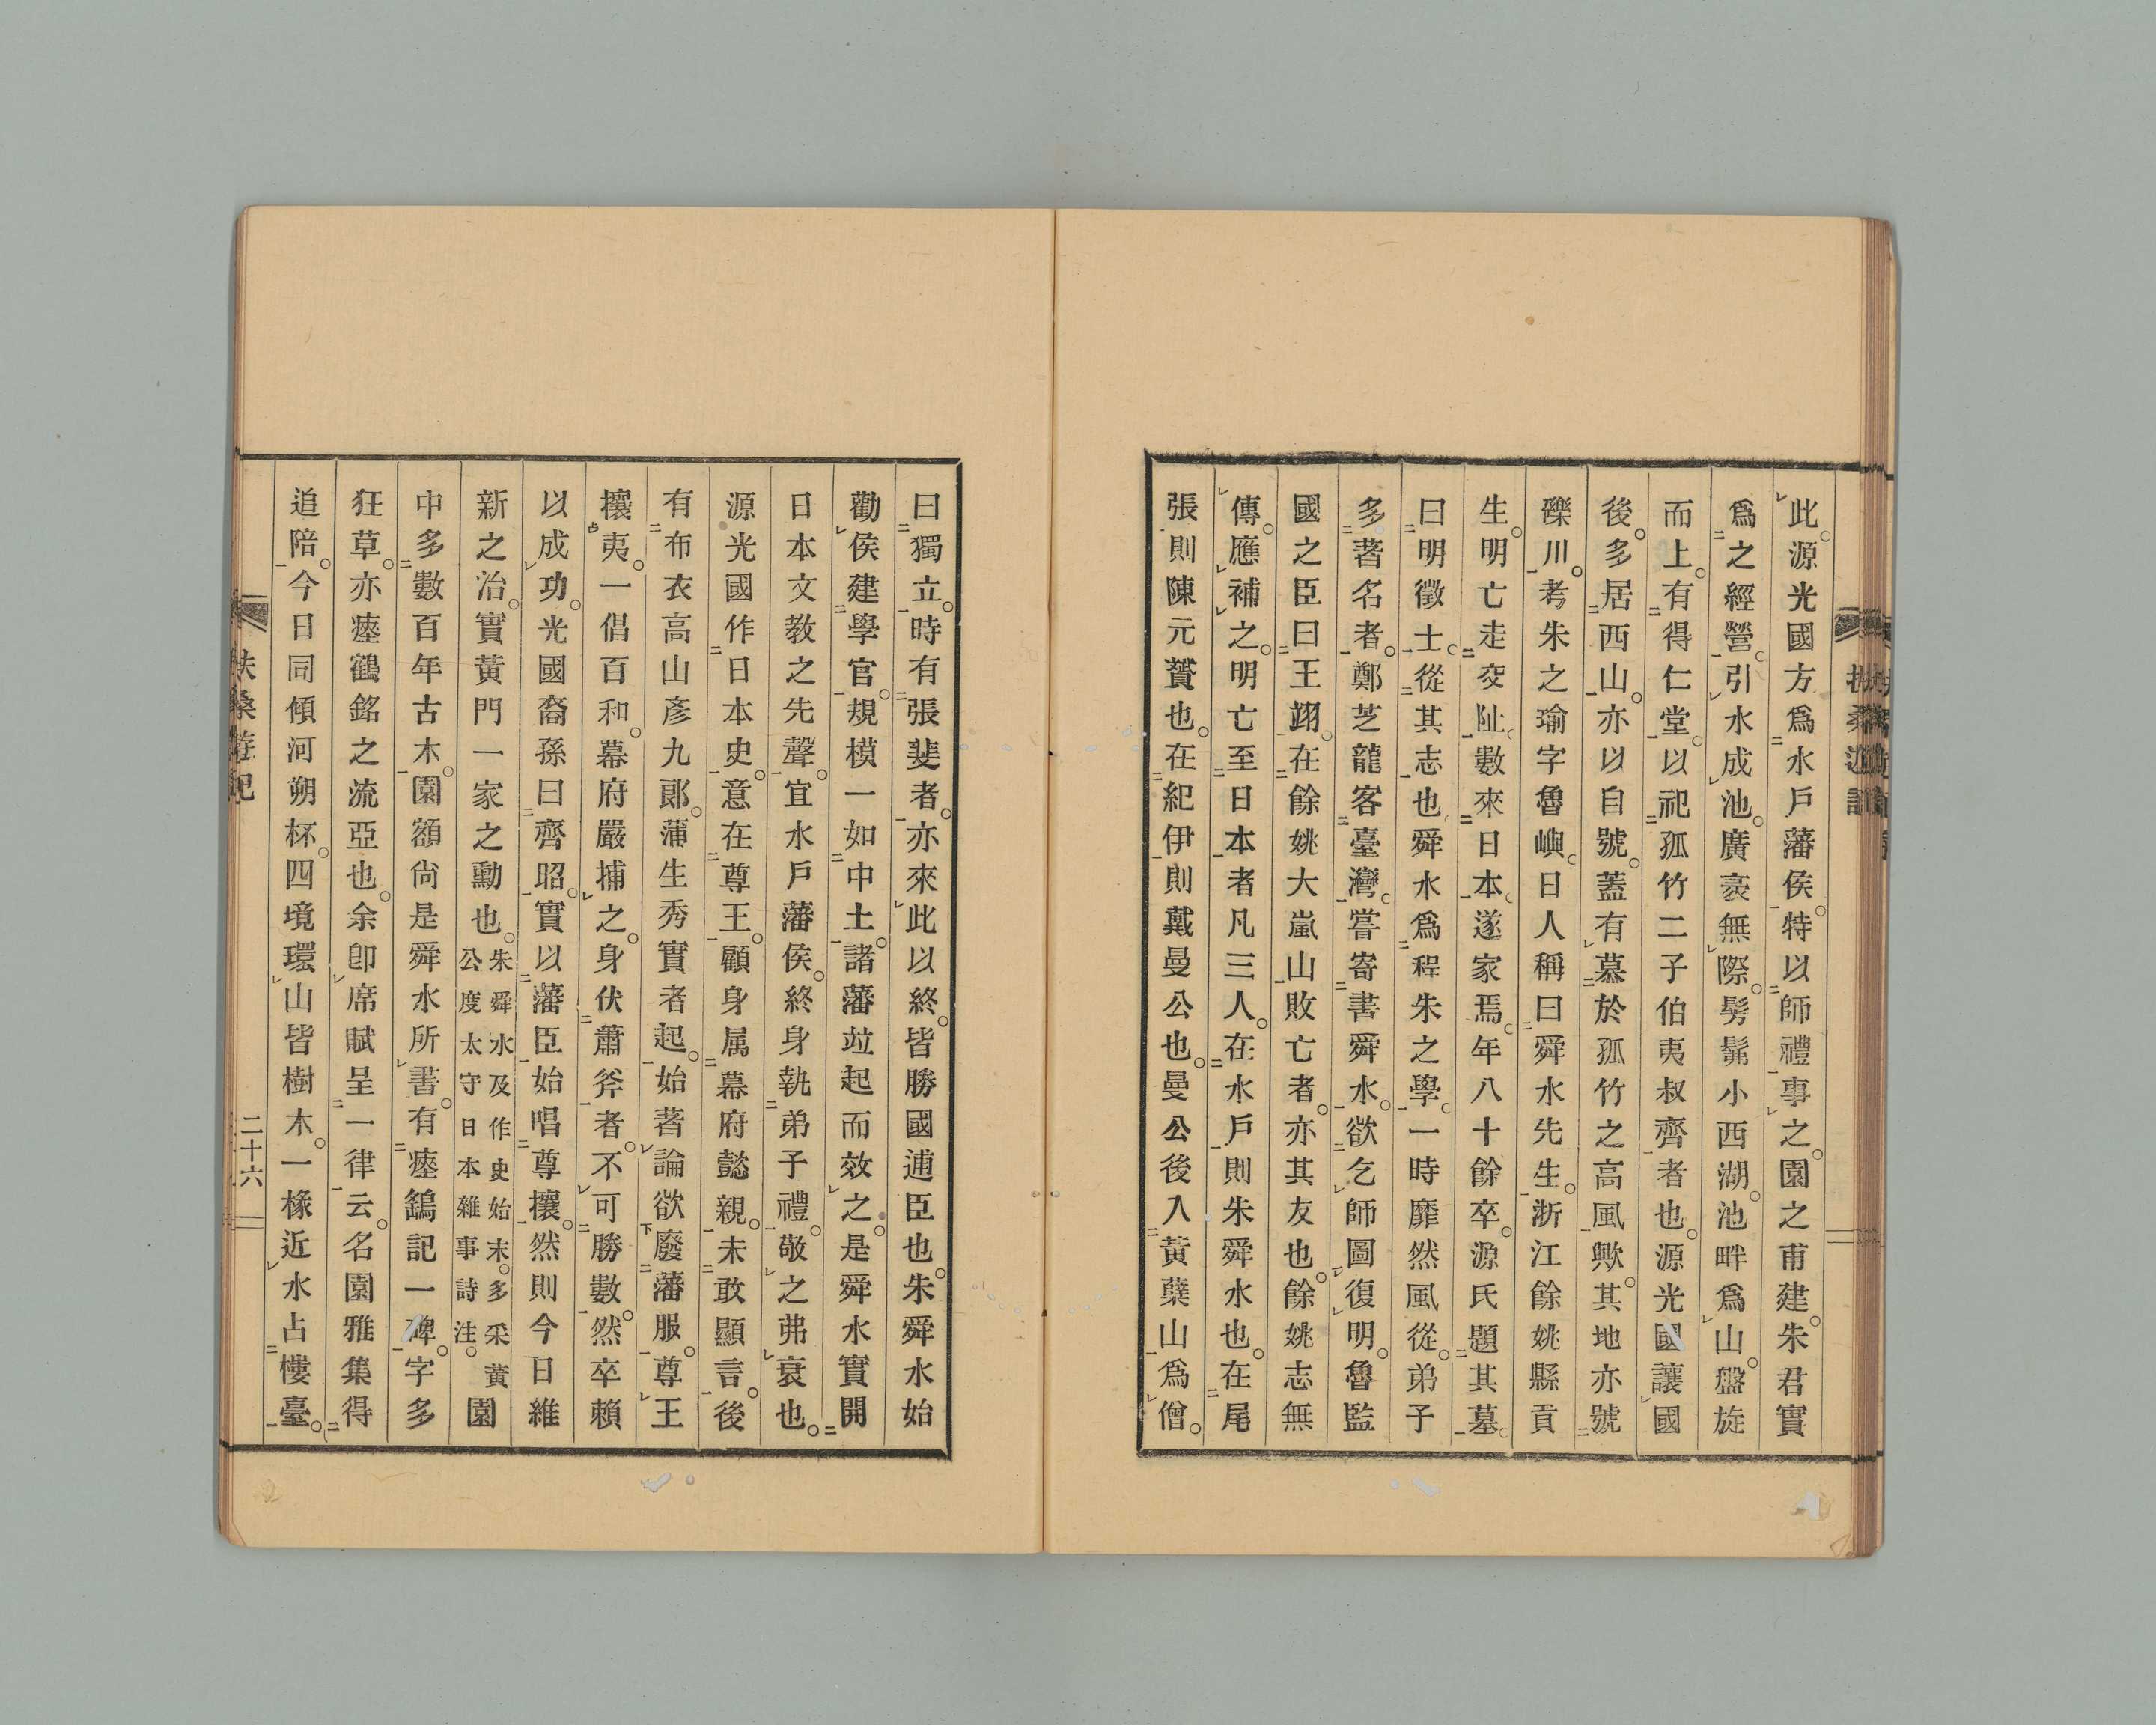 此。源光國方爲水戶藩侯。特以師禮事之。園之甫建。朱君實
爲之經營。引水成池。廣袤無際。髣髴小西湖。池畔爲山。盤旋
而上。有得仁堂。以祀孤竹二子伯夷叔齊者也。源光國讓國
後。多居西山。亦以自號。蓋有慕於孤竹之高風歟。其地亦號
礫川。考朱之瑜字魯嶼。日人稱曰舜水先生。浙江餘姚縣貢
生。明亡走交趾。數來日本。遂家焉。年八十餘卒。源氏題其墓
曰明徵士。從其志也。舜水爲程朱之學。一時靡然風從。弟子
多著名者。鄭芝龍客臺灣。嘗寄書舜水。欲乞師圖復明。魯監
國之臣曰王翊。在餘姚大嵐山敗亡者。亦其友也。餘姚志無
傳。應補之。明亡至日本者凡三人。在水戶則朱舜水也。在尾
張則陳元贇也。在紀伊則戴曼公也。曼公後入黃蘗山爲僧。
曰獨立。時有張斐者。亦來此以終。皆勝國逋臣也。朱舜水始
勸侯建學官。規模一如中土。諸藩竝起而效之。是舜水實開
日本文敎之先聲。宜水戶藩侯。終身執弟子禮。敬之弗衰也。
源光國作日本史。意在尊王。顧身属幕府懿親。未敢顯言。後
有布衣高山彥九郞。蒲生秀實者起。始著論欲廢藩服。尊王
攘夷。一倡百和。幕府嚴捕之。身伏蕭斧者。不可勝數。然卒賴
以成功。光國裔孫曰齊昭。實以藩臣始唱尊攘。然則今日維
新之治。實黃門一家之勳也。朱舜水及作史始末。多采黃公度太守日本雜事詩注。園
中多數百年古木。園額尙是舜水所書。有瘞鷂記一碑。字多
狂草。亦瘞鶴銘之流亞也。余卽席賦呈一律云。名園雅集得
追陪。今日同傾河朔杯。四境環山皆樹木。一椽近水占樓臺。
扶桑遊記
二十六